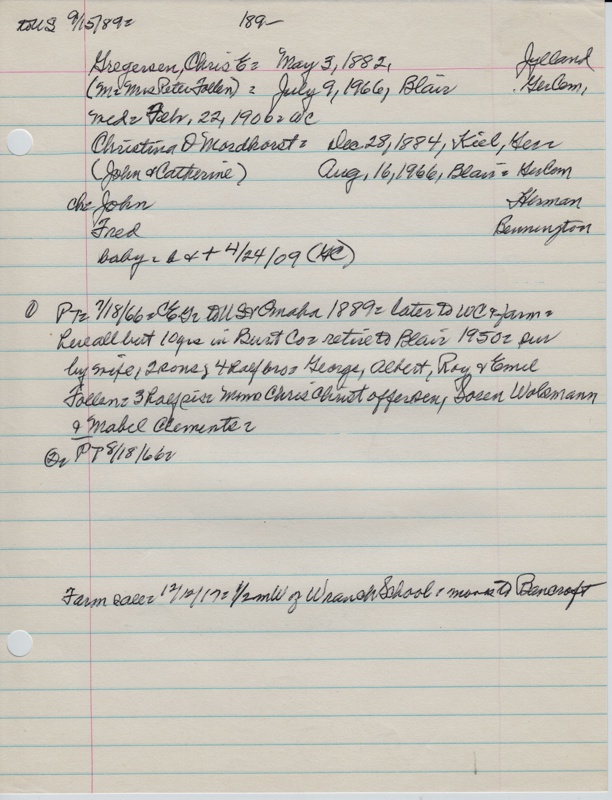 to US 9/15/89= 189-
Gregersen, Chris E= May 3, 1882, Jylland
(M= Mrs Peter Follen) = July 9, 1966, Blair GerCem,
med= Febr, 22, 1906= WC
Christina D Mordhorst= Dec 28, 1884, Kiel, Ger
(John & Catherine) Aug, 16, 1966, Blair= GerCem
ch= John Herman
Fred Bennington
baby= b & + 4/24/09 (GC)
① PT= 7/18/66= CEG= to US & Omaha 1889= later to WC & farm=
here all but 10yrs in Burt Co= retire to Blair 1950= sur
by wife, 2 sons; 4 half bros= George, Albert, Roy & Emil
Follen= 3 half sis= Mmes Chris Christoffersen, Wolsmann
& Mabel Clements=
②= PT 8/18/66=
Farm sale= 12/12/17= 1/2 m W of Wranch School= moves to Bancroft